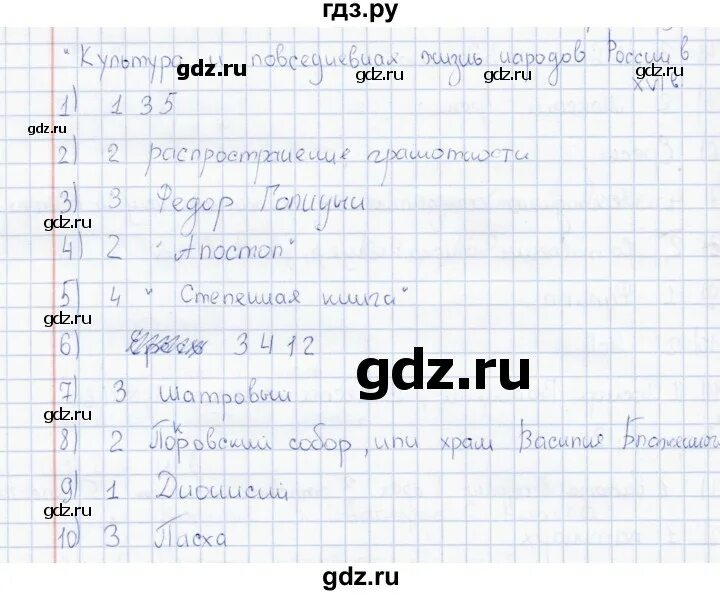 гдз.ру
"Культура и повседневная жизнь народов России в
XVI в.
gdz.ru gdz.ru
1) 1 3 5
gdz.ru
2) 2 распространение грамотности
3) 3 Федор Голицын
gdz.ru
4) 2 "Апостол"
5) 4 "Степенная книга"
gdz.ru
6) 3 4 1 2
gdz.ru
7) 3 шатровый
gdz.ru
8) 2 Покровский собор, или храм Василия Блаженного
9) 1 Дионисий
gdz.ru
10) 3 Пасха
gdz.ru